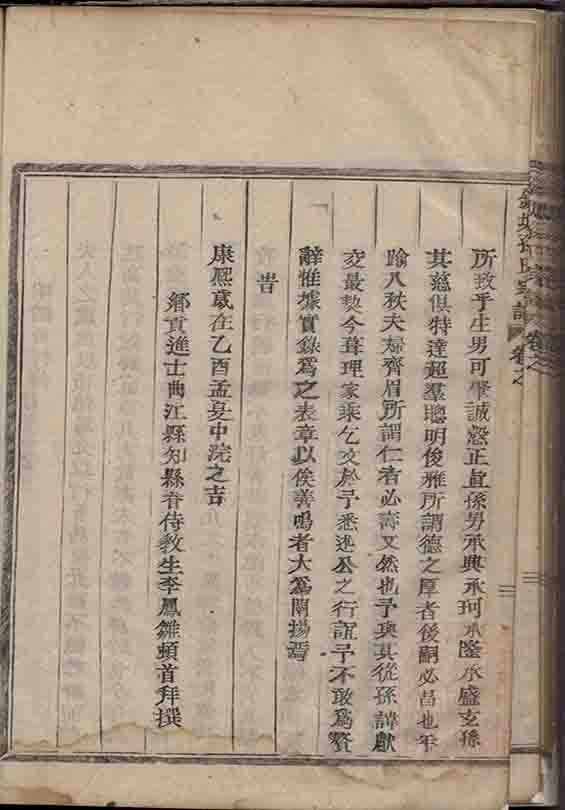 所致乎生男可肇誠慤正直係男承興承珂承隆承盛玄孫
其慈俱特達超羣聰明俊雅所謂德之厚者後嗣必昌也年
踰八秩夫婦齊眉所謂仁者必壽又然也予與其從孫諱獻
交最契今葺理家乘乞文於予悉述公之行誼予不敢爲贅
辭惟據實錄爲之表章以俟善鳴者大爲闡揚焉
旹
康熙歲在乙酉孟夏中浣之吉
鄉貢進士曲江縣知縣眷侍教生李鳳雛頓首拜撰
氏宗譜 卷之